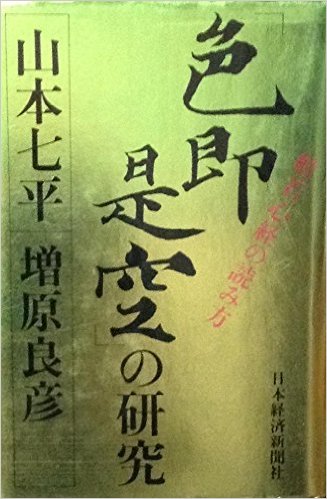 「色即
是空」の研究
の読み方
山本七平
増原良彦
日本経済新聞社